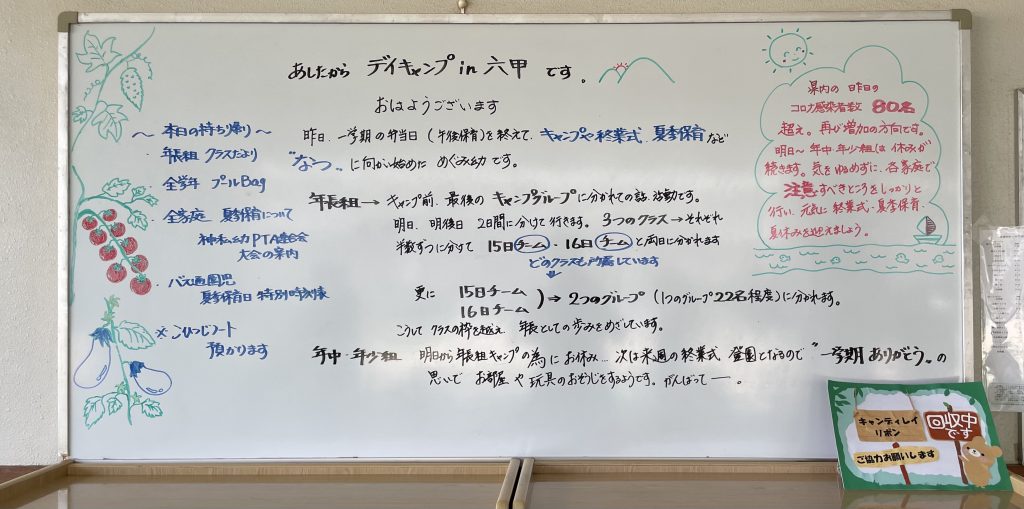 あしたから デイキャンプ in 六甲 です。
おはようございます
昨日、一学期の弁当日(午後保育)を終えて、キャンプや終業式、夏季保育など
"なつ"に向かい始めた めぐみ幼です。
年長組→ キャンプ前、最後のキャンプグループに分かれての話、活動です。
明日、明後日 2日間に分けて行きます。3つのクラス→それぞれ
半数ずつに分けて 15日チーム・16日チームと両日に分かれます
どのクラスも所属しています
更に 15日チーム
16日チーム ) → 2つのグループ(1つのグループ22名程度)に分かれます。
こうして クラスの枠を越え 年長としての歩みをめざしています。
年中・年少組 明日から年長組キャンプの為にお休み… 次は来週の終業式 登園となるので"一学期ありがとう"の
思いで お部屋や玩具のおそうじをするようです。がんばってー。
〜 本日の持ち帰り 〜
年長組 クラスだより
全学年 プールBag
全家庭 夏季保育について
神私幼PTA連合会
大会の案内
バス通園児
夏季保育日 特別時刻表
※こひつじノート
預かります
県内の昨日の
コロナ感染者数 80名
超え。再び増加の方向です。
明日〜年中・年少組は休みが
続きます。気をゆるめずに、各家庭で
注意すべきところをしっかりと
行い、元気に終業式・夏季保育・
夏休みを迎えましょう。
キャンディレイ
リボン
回収中
です
ご協力お願いします